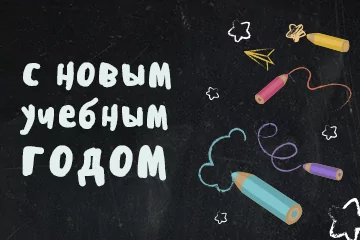 С НОВЫМ
учебным
ГОДОМ